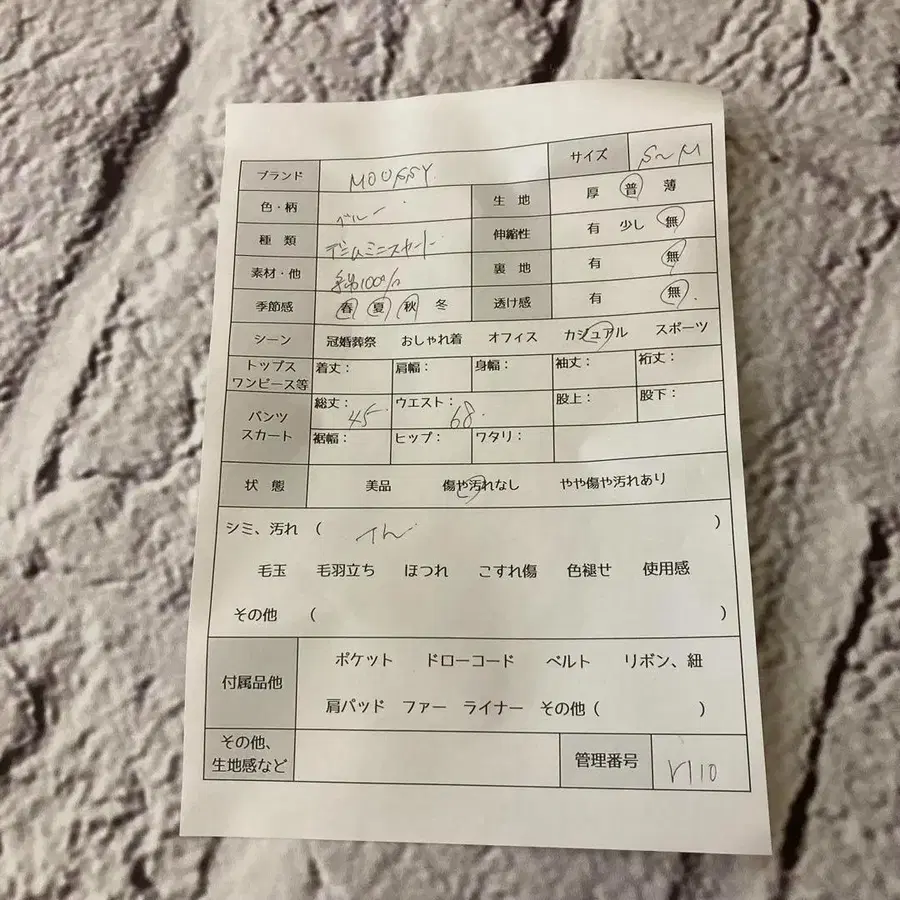 ブランド MOUSSY サイズ S~M
色・柄 ブルー 生地 厚 普 薄
種類 デニムミニスカート 伸縮性 有 少し 無
素材・他 綿100% 裏地 有 無
季節感 春 夏 秋 冬 透け感 有 無
シーン 冠婚葬祭 おしゃれ着 オフィス カジュアル スポーツ
トップス ワンピース等 着丈: 肩幅: 身幅: 袖丈: 裄丈:
パンツ スカート 総丈: 45 ウエスト: 68 股上: 股下:
裾幅: ヒップ: ワタリ:
状態 美品 傷や汚れなし やや傷や汚れあり
シミ、汚れ ( )
毛玉 毛羽立ち ほつれ こすれ傷 色褪せ 使用感
その他 ( )
付属品他 ポケット ドローコード ベルト リボン、紐
肩パッド ファー ライナー その他 ( )
その他、 生地感など 管理番号